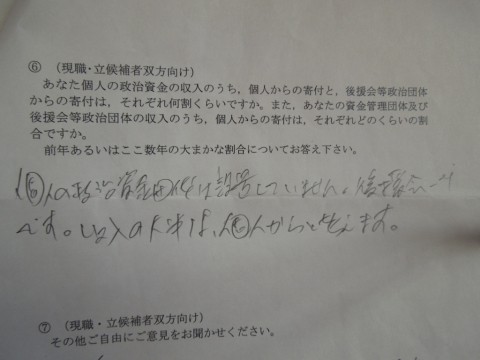 ⑥ (現職・立候補者双方向け)
あなた個人の政治資金の収入のうち，個人からの寄付と，後援会等政治団体
からの寄付は，それぞれ何割くらいですか。また，あなたの資金管理団体及び
後援会等政治団体の収入のうち，個人からの寄付は，それぞれどのくらいの割
合ですか。
前年あるいはここ数年の大まかな割合についてお答え下さい。
個人の政治資金団体は設号していません。後援会一本
です。収入の大半は、個人からと言えます。
⑦ (現職・立候補者双方向け)
その他ご自由にご意見をお聞かせください。